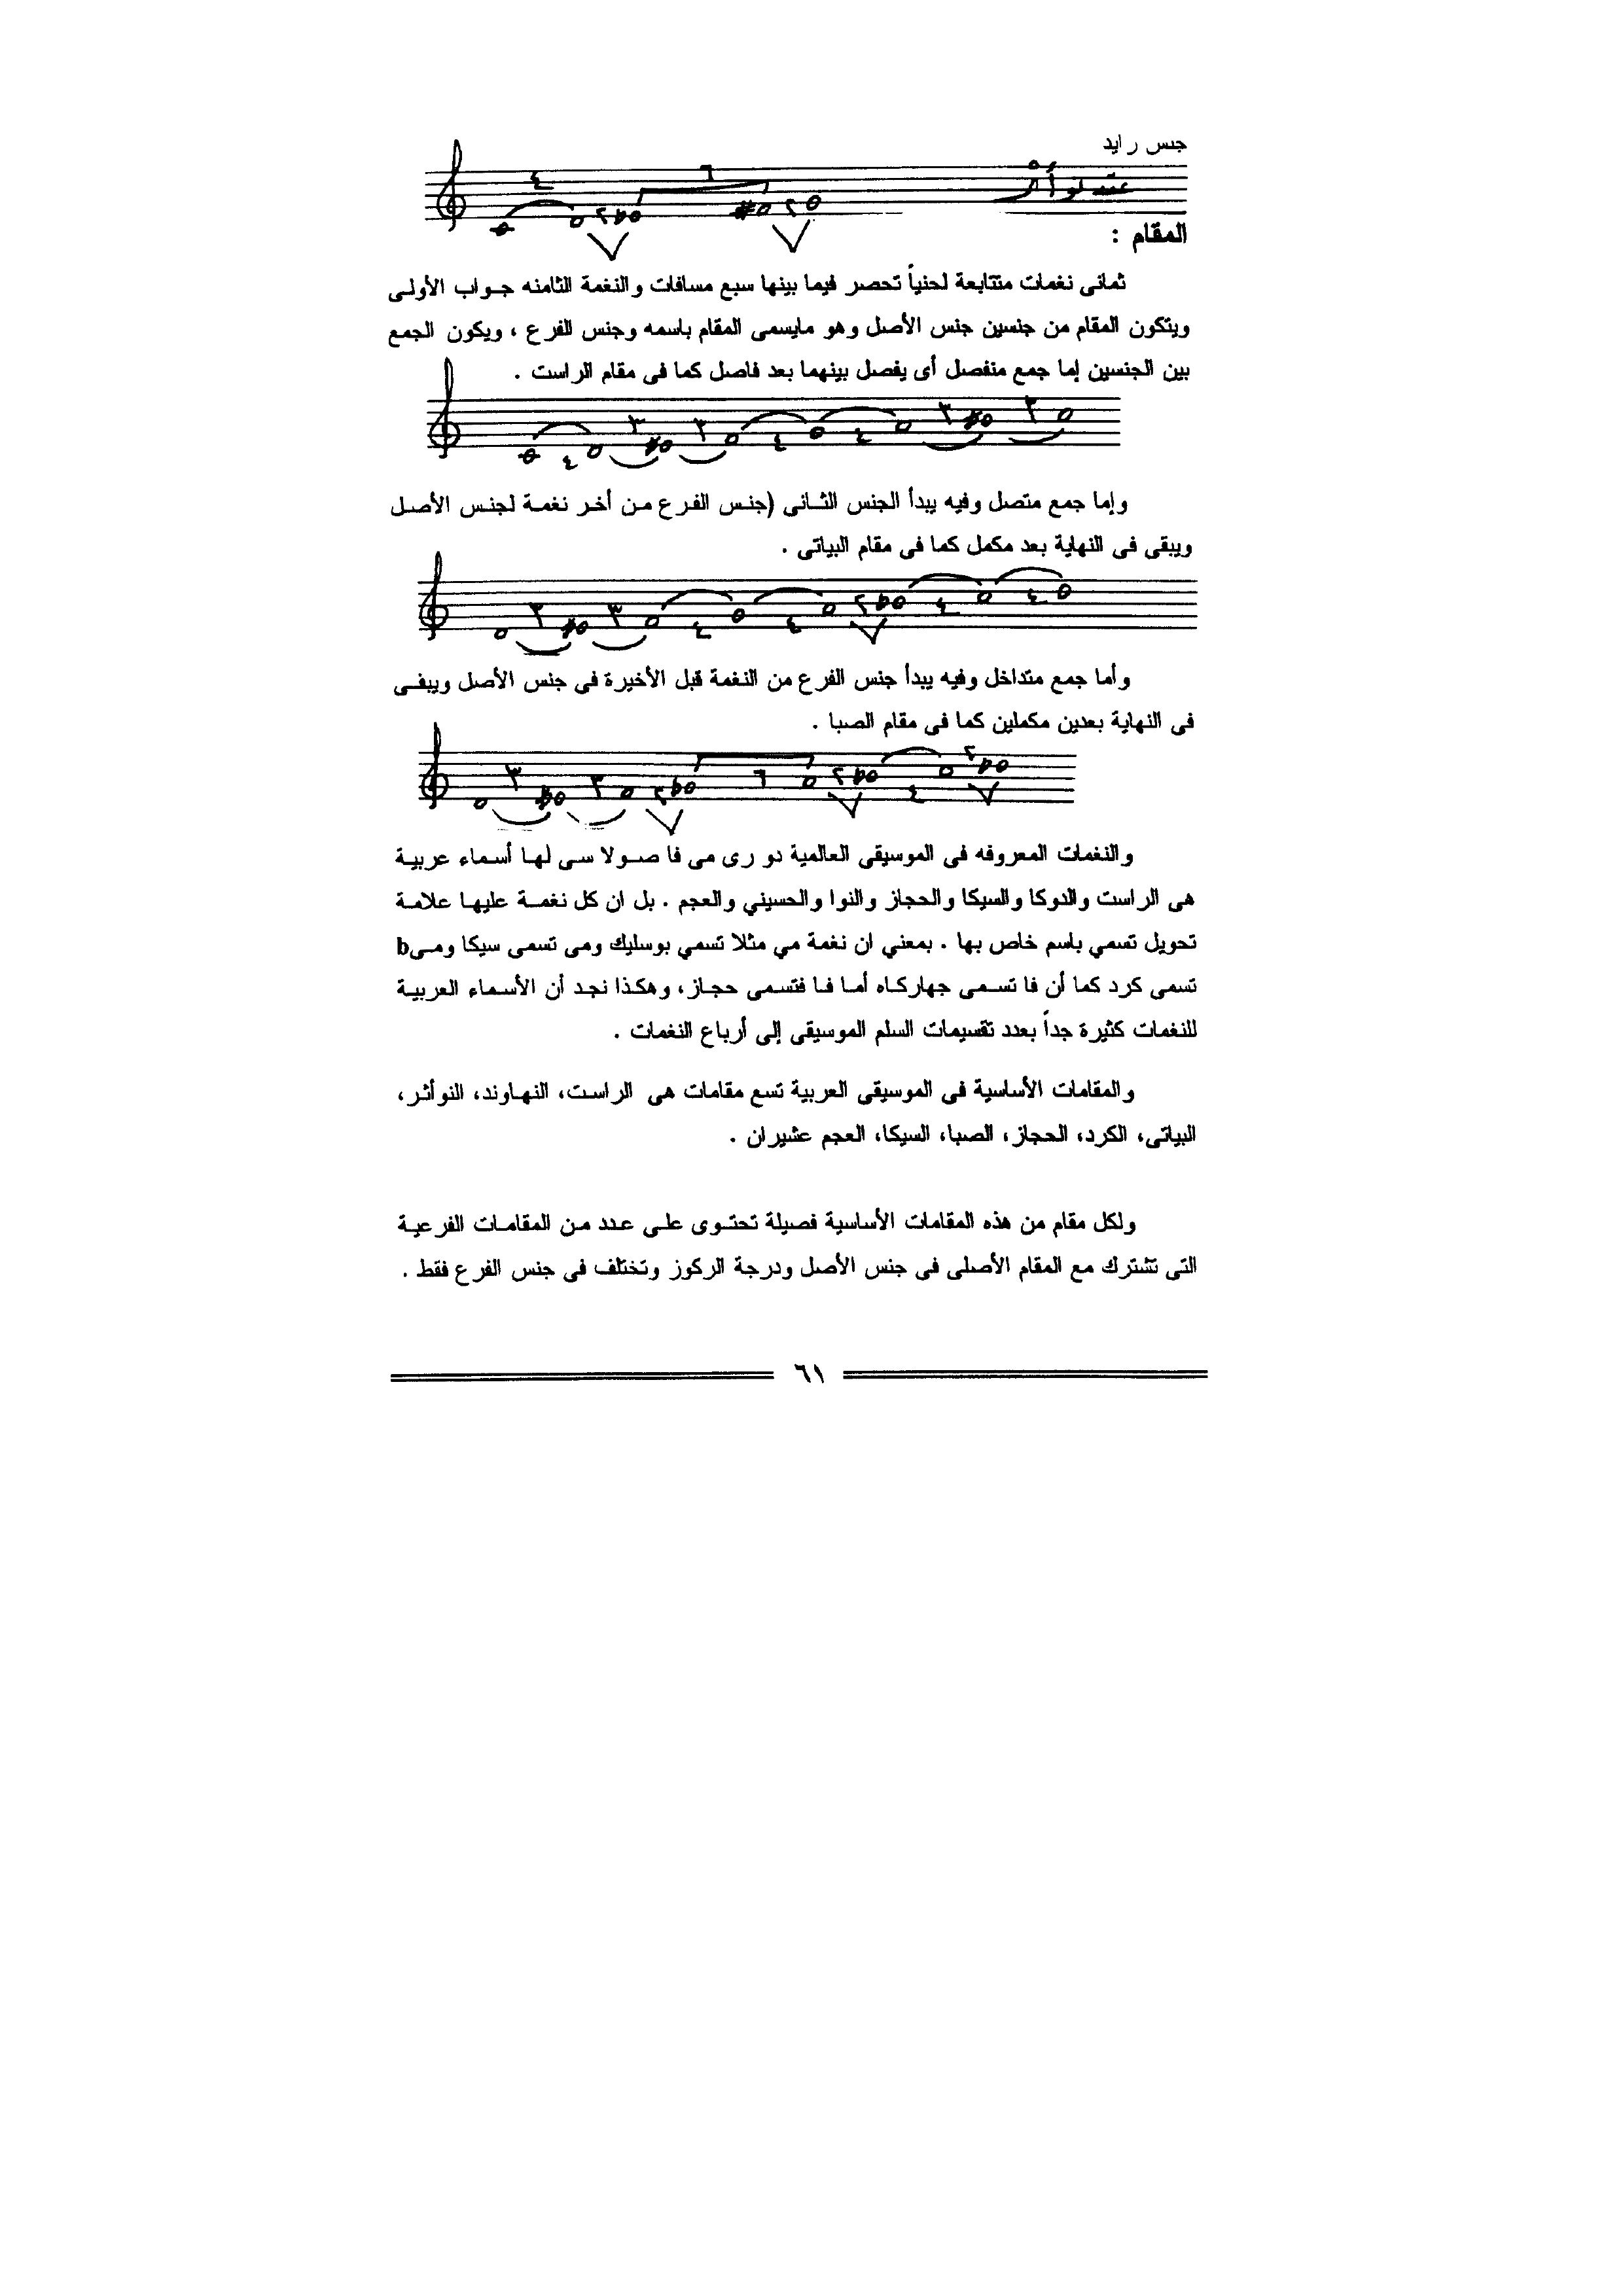 جنس زايد
عقد نوأثر
٤ ٢ ٦ ٢
المقام :
ثمانى نغمات متتابعة لحنياً تحصر فيما بينها سبع مسافات والنغمة الثامنه جواب الأولى
ويتكون المقام من جنسين جنس الأصل وهو مايسمى المقام باسمه وجنس الفرع ، ويكون الجمع
بين الجنسين إما جمع منفصل أى يفصل بينهما بعد فاصل كما فى مقام الراست .
٤ ٣ ٣ ٤ ٤ ٣ ٣
وإما جمع متصل وفيه يبدأ الجنس الثانى (جنس الفرع من أخر نغمة لجنس الأصل
ويبقى فى النهاية بعد مكمل كما فى مقام البياتى .
٣ ٣ ٤ ٤ ٢ ٤ ٤
وأما جمع متداخل وفيه يبدأ جنس الفرع من النغمة قبل الأخيرة فى جنس الأصل ويبقى
فى النهاية بعدين مكملين كما فى مقام الصبا .
٣ ٣ ٢ ٦ ٢ ٤ ٢
والنغمات المعروفه فى الموسيقى العالمية دو رى مى فا صولا سى لها أسماء عربية
هى الراست والدوكا والسيكا والحجاز والنوا والحسيني والعجم . بل ان كل نغمة عليها علامة
تحويل تسمي باسم خاص بها . بمعني ان نغمة مي مثلا تسمي بوسليك ومى تسمى سيكا ومىb
تسمى كرد كما أن فا تسمى جهاركاه أما فا فتسمى حجاز، وهكذا نجد أن الأسماء العربية
للنغمات كثيرة جداً بعدد تقسيمات السلم الموسيقى إلى أرباع النغمات .
والمقامات الأساسية فى الموسيقى العربية تسع مقامات هى الراست، النهاوند، النوأثر،
البياتى، الكرد، الحجاز، الصبا، السيكا، العجم عشيران .
ولكل مقام من هذه المقامات الأساسية فصيلة تحتوى على عدد من المقامات الفرعية
التى تشترك مع المقام الأصلى فى جنس الأصل ودرجة الركوز وتختلف فى جنس الفرع فقط .
٦١